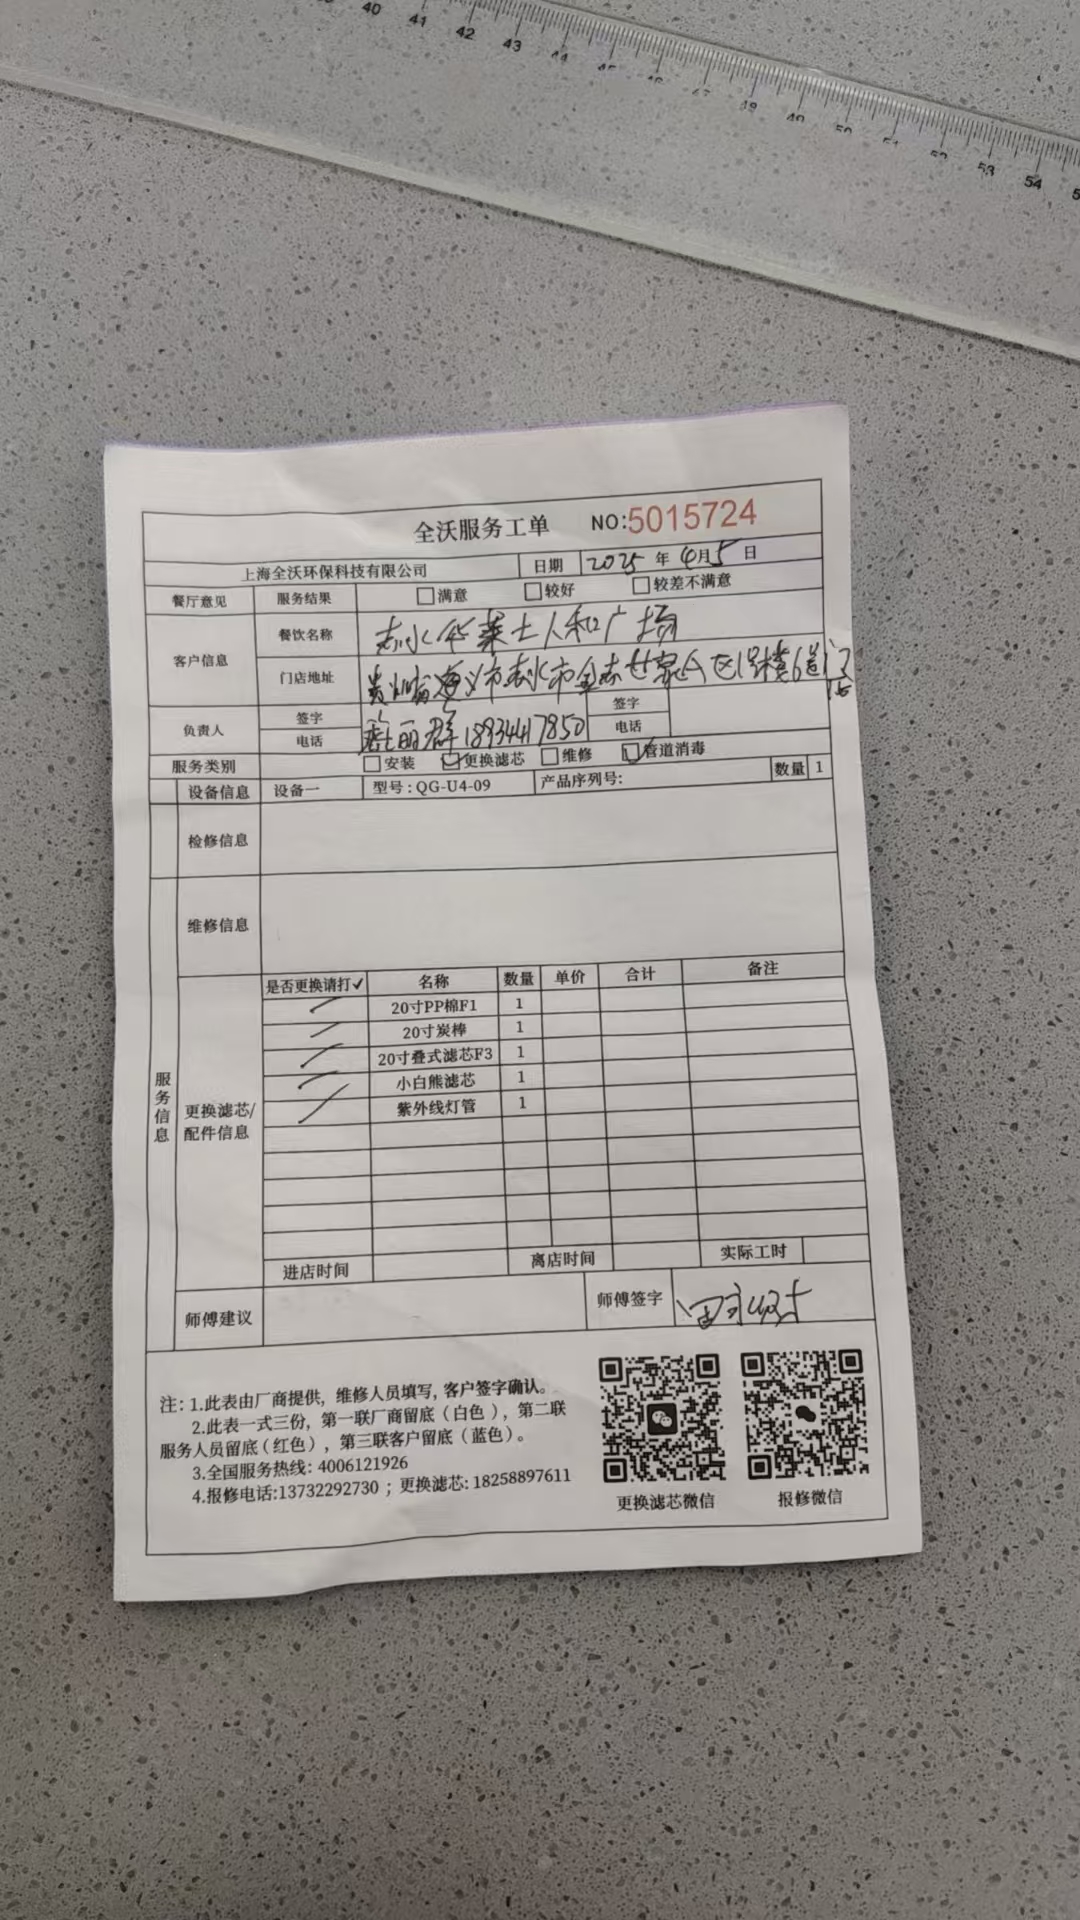 40 41 42 43 44 45 46 47 48 49 50 51 52 53 54
全沃服务工单 NO:5015724
上海全沃环保科技有限公司 日期 2025 年 4月5日
餐厅意见 服务结果 满意 较好 较差不满意
客户信息 餐饮名称 赤水华莱士人和广场
门店地址 贵州省遵义市赤水市金赤世家A区1号楼6道门
负责人 签字 丽群 签字
电话 18934417850 电话
服务类别 安装 更换滤芯 维修 管道消毒
设备信息 设备一 型号:QG-U4-09 产品序列号: 数量 1
检修信息
维修信息
服务信息
更换滤芯/配件信息
是否更换请打✓ 名称 数量 单价 合计 备注
20寸PP棉F1 1
20寸炭棒 1
20寸叠式滤芯F3 1
小白熊滤芯 1
紫外线灯管 1
进店时间 离店时间 实际工时
师傅建议 师傅签字
注: 1.此表由厂商提供, 维修人员填写, 客户签字确认。
2.此表一式三份, 第一联厂商留底(白色), 第二联
服务人员留底(红色), 第三联客户留底(蓝色)。
3.全国服务热线: 4006121926
4.报修电话:13732292730 ; 更换滤芯: 18258897611
更换滤芯微信 报修微信